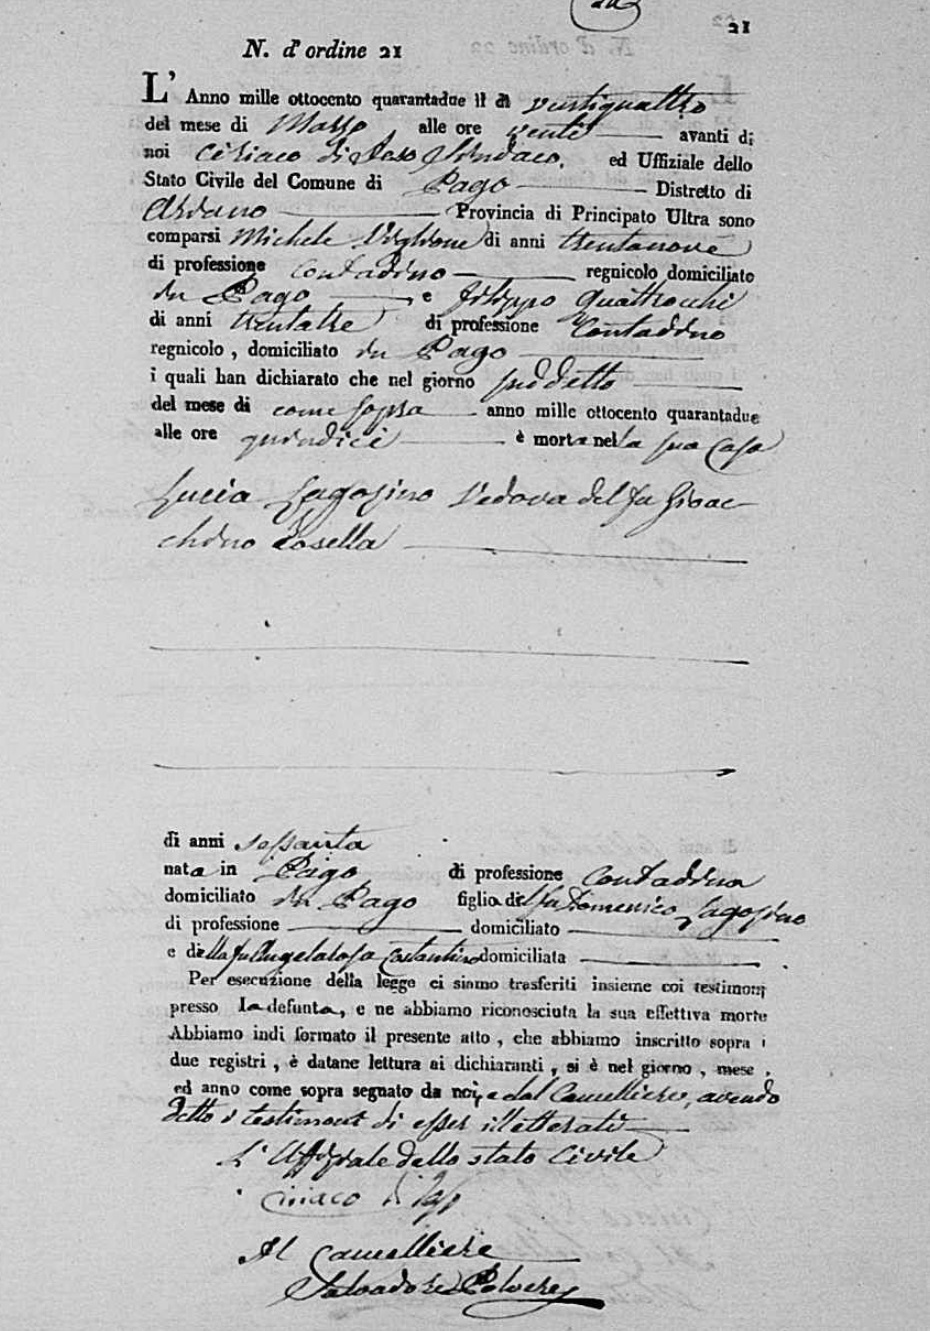 21
N. d'ordine 21
L'Anno mille ottocento quarantadue il di ventiquattro
del mese di Marzo alle ore venti avanti di
noi Ciriaco di Sindaco, ed Uffiziale dello
Stato Civile del Comune di Pago Distretto di
Ariano Provincia di Principato Ultra sono
comparsi Michele Viglione di anni trentanove
di professione Contadino regnicolo domiciliato
in Pago e Filippo Quattrocchi
di anni trentatre di professione Contadino
regnicolo, domiciliato in Pago
i quali han dichiarato che nel giorno suddetto
del mese di come sopra anno mille ottocento quarantadue
alle ore quindici è morta nella sua Casa
Lucia Vedova del fu Gioac-
chino
di anni sessanta
nata in Pago di professione Contadina
domiciliato in Pago figlia del fu Domenico
di professione domiciliato
e della fu Angelarosa Costantino domiciliata
Per esecuzione della legge ci siamo trasferiti insieme coi testimonj
presso la defunta, e ne abbiamo riconosciuta la sua effettiva morte
Abbiamo indi formato il presente atto, che abbiamo inscritto sopra i
due registri, è datane lettura ai dichiaranti, si è nel giorno, mese,
ed anno come sopra segnato da noi, e dal Cancelliere, avendo
detto i testimonj di esser illetterati
L'Uffiziale dello stato Civile
Ciriaco di
Il Cancelliere
Salvadore